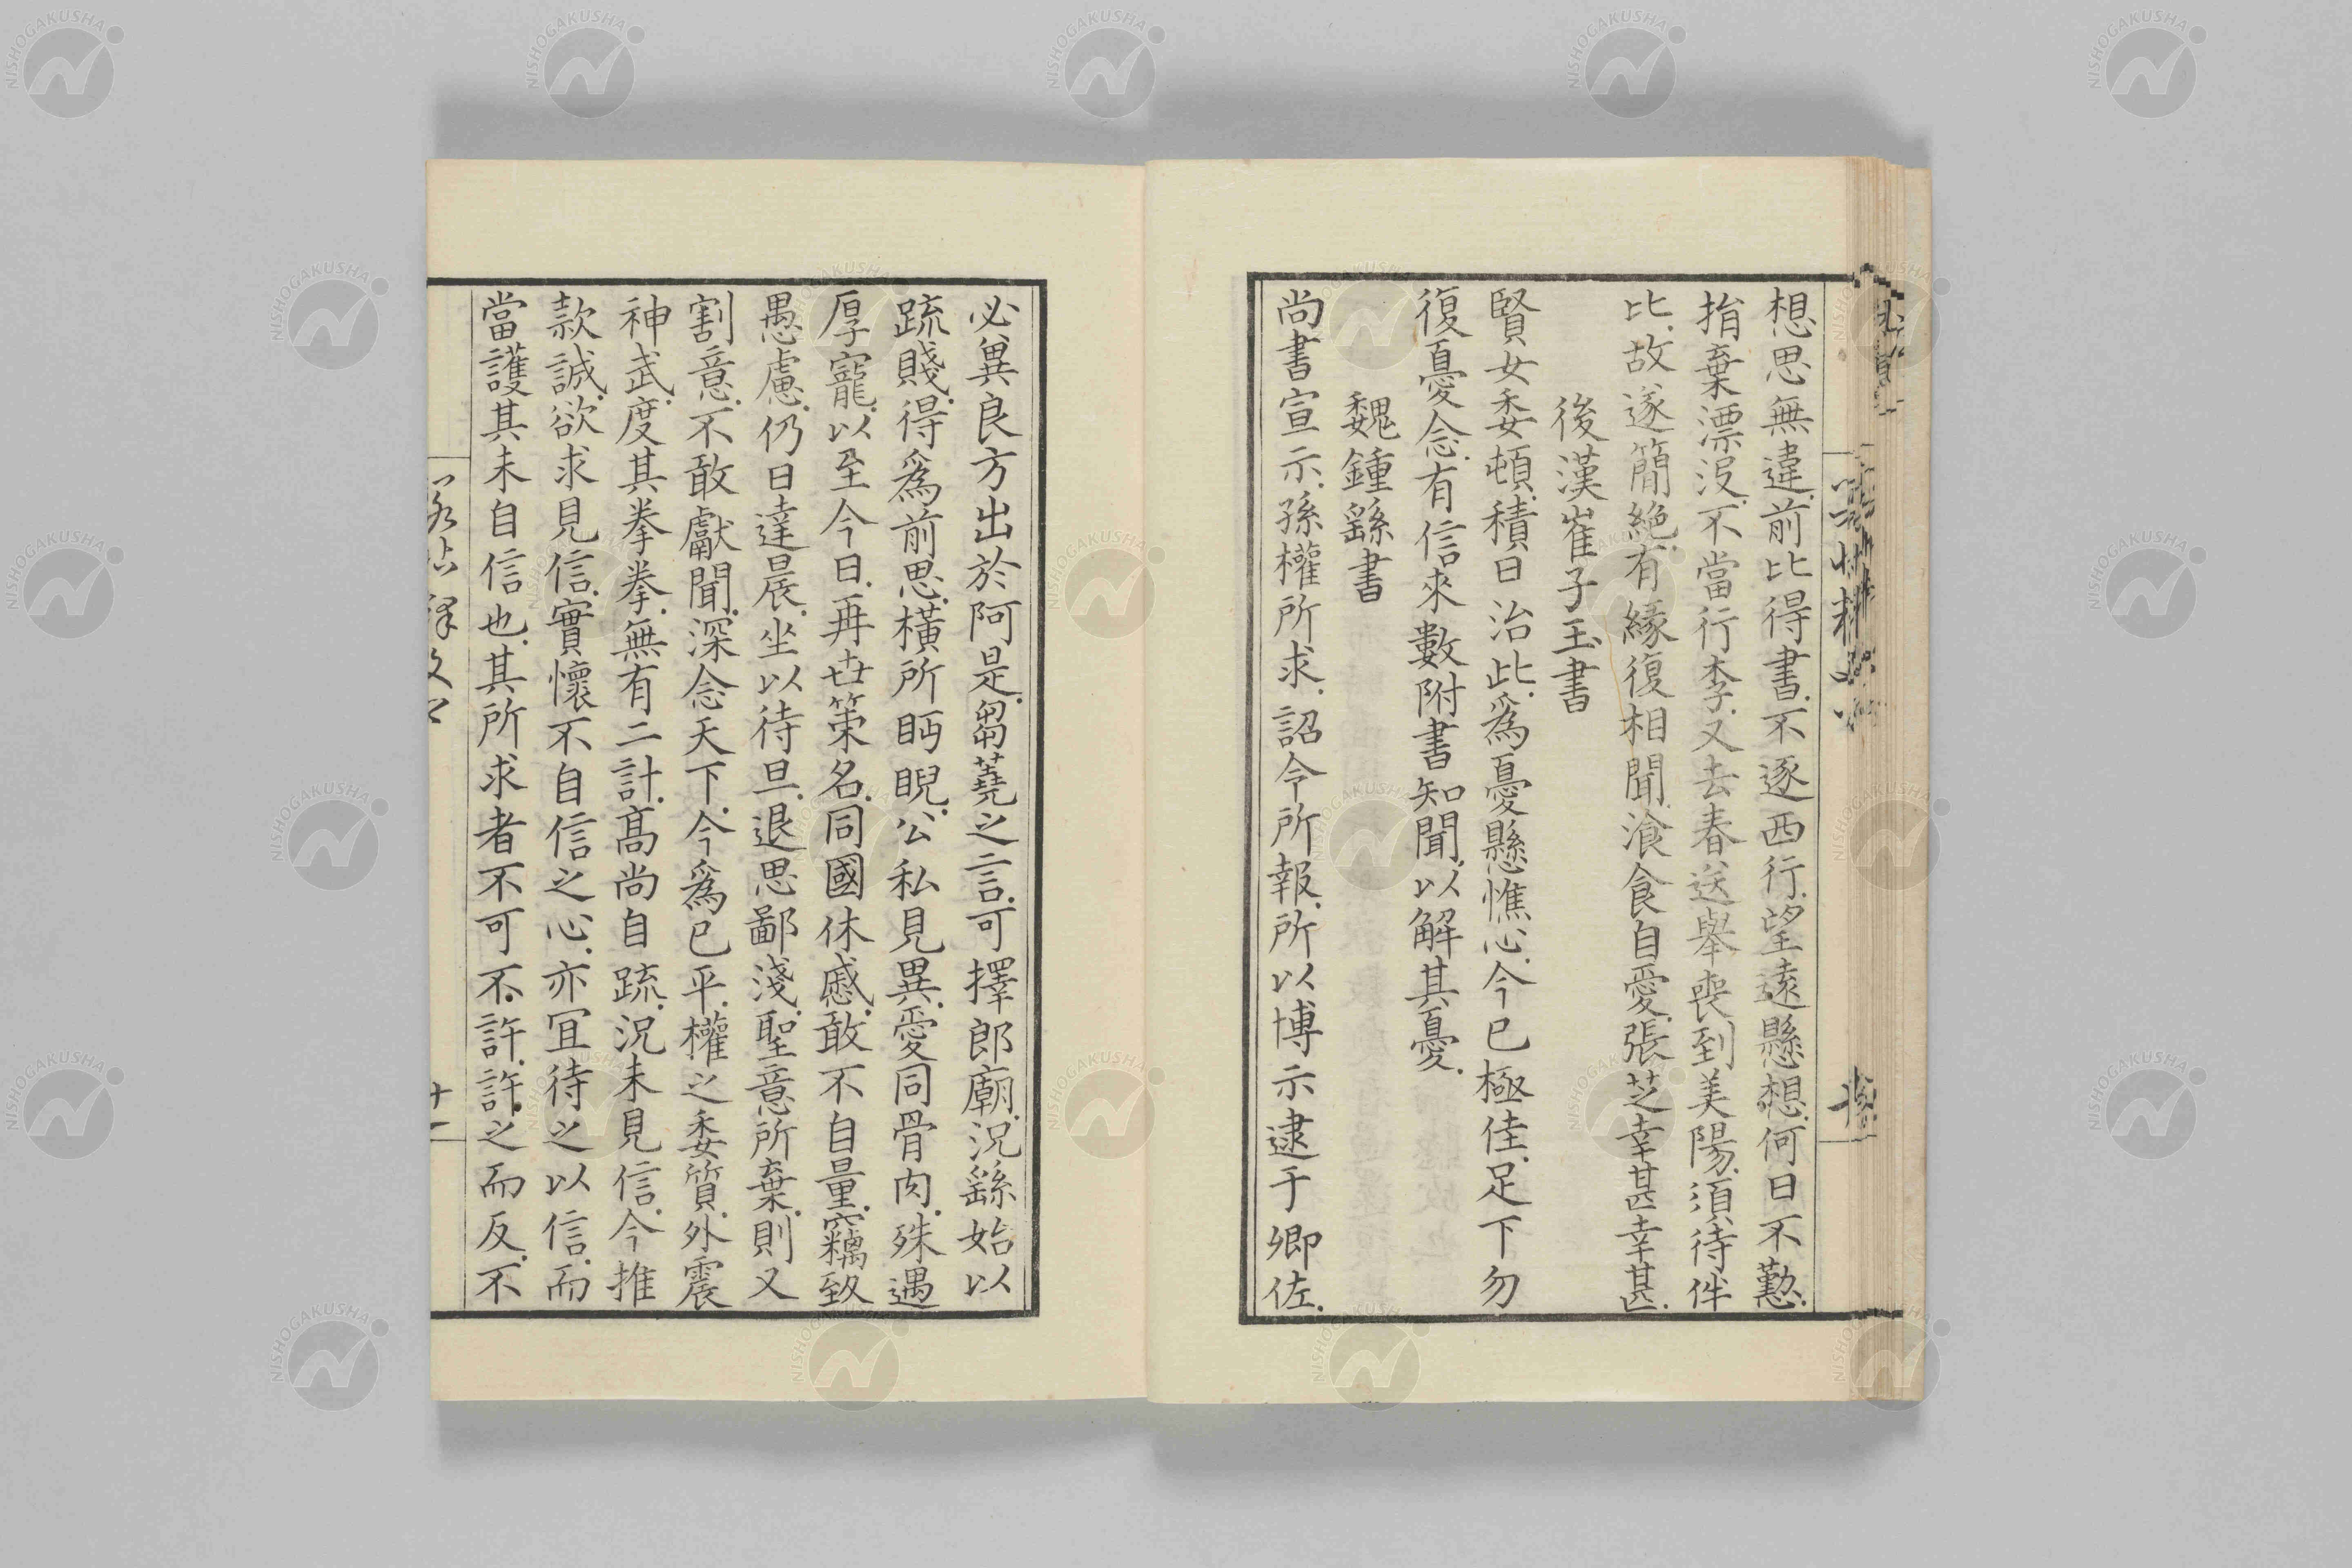 想思無違.前比得書.不逐西行.望遠懸想.何日不懃.
捐棄漂沒.不當行李.又去春送舉喪到美陽.須待伴
比.故遂簡絶.有緣復相聞.飡食自愛.張芝幸甚幸甚.
後漢崔子玉書
賢女委頓.積日治此.爲憂懸憔心.今已極佳.足下勿
復憂念.有信來數附書知聞.以解其憂.
魏鍾繇書
尚書宣示.孫權所求.詔令所報.所以博示逮于卿佐.
必冀良方出於阿是.芻蕘之言.可擇郎廟.況繇始以
疏賤.得爲前思.橫所眄睨.公私見異.愛同骨肉.殊遇
厚寵.以至今日.再世榮名.同國休慼.敢不自量.竊致
愚慮.仍日達晨.坐以待旦.退思鄙淺.聖意所棄.則又
割意.不敢獻聞.深念天下.今爲已平.權之委質.外震
神武.度其拳拳.無有二計.髙尚自疏.況未見信.今推
款誠.欲求見信.實懷不自信之心.亦冝待之以信.而
當護其未自信也.其所求者不可不許.許之而反.不
NISHOGAKUSHA